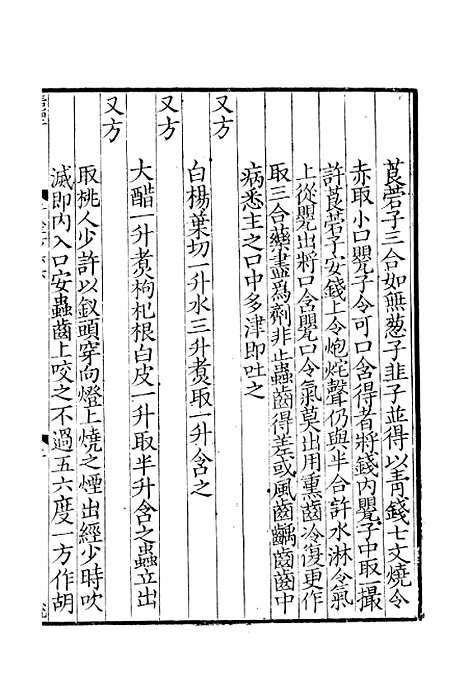 莨菪子三合如無葱子韭子並得以青錢七文燒令
赤取小口甖子令可口含得者將錢內甖子中取一撮
許莨菪子安錢上令炮烢聲仍與半合許水淋令氣
上從甖出將口含甖口令氣莫出用熏齒冷復更作
取三合藥盡爲劑非止蟲齒得差或風齒齲齒齒中
病悉主之口中多津即吐之
又方
白楊葉切一升水三升煑取一升含之
又方
大醋一升煑枸杞根白皮一升取半升含之蟲立出
又方
取桃人少許以釵頭穿向燈上燒之煙出經少時吹
滅即內入口安蟲齒上咬之不過五六度一方作胡